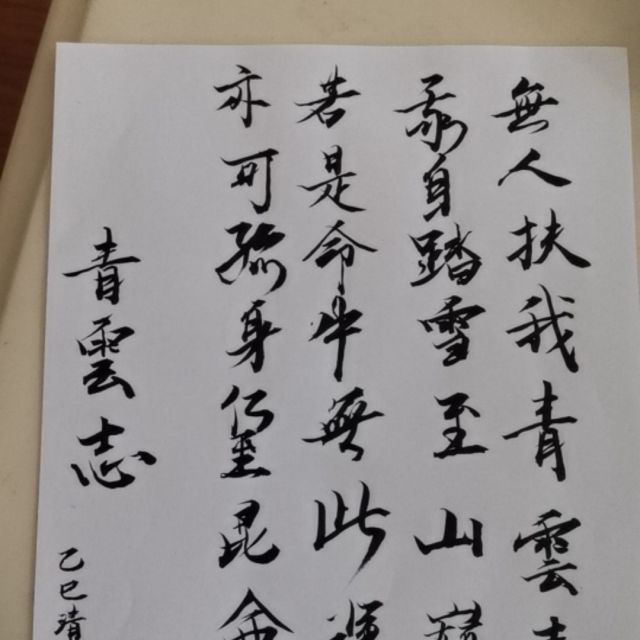 無人扶我青雲
我自踏雪至山
若是命中無此運
亦可孤身昆侖
青雲志
乙巳清